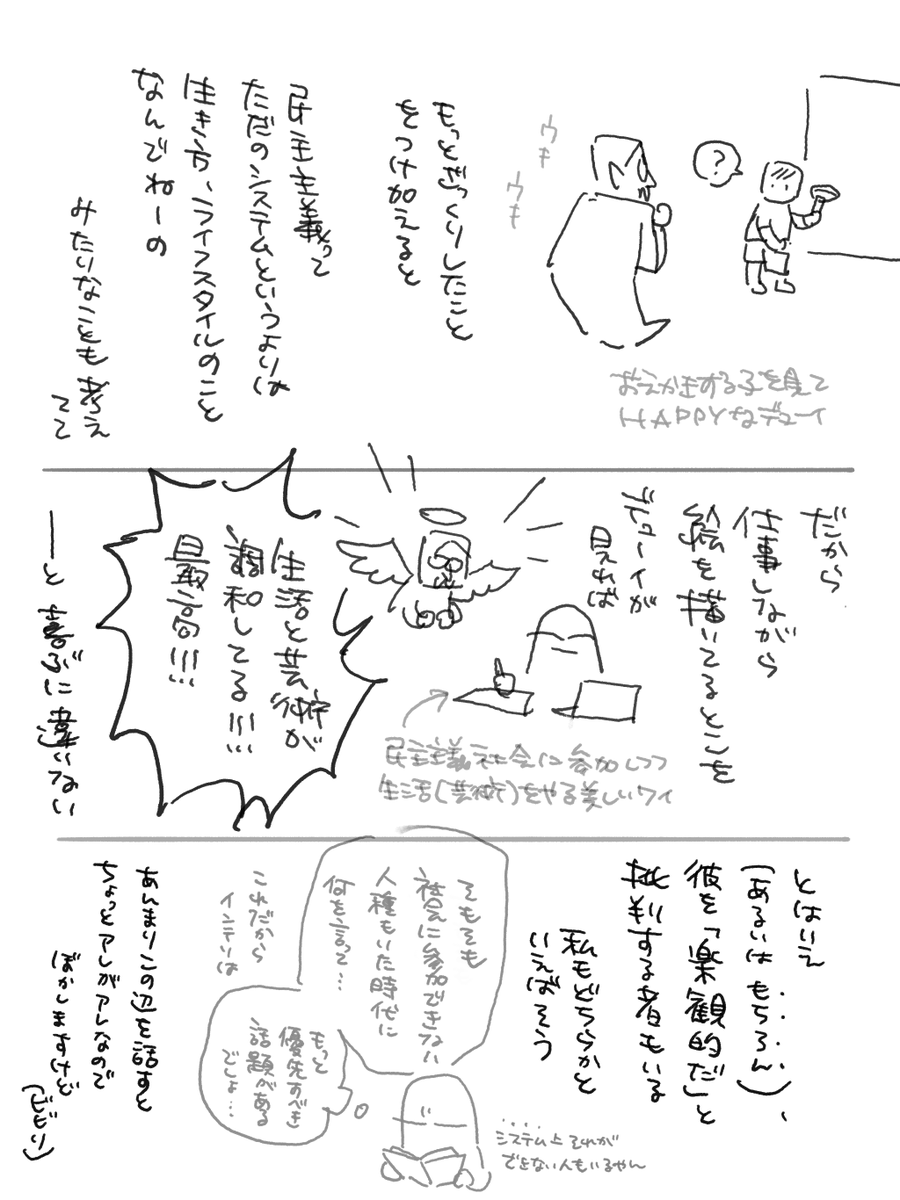 ?
ウキ
ウキ
おえかきする子を見て
HAPPYなデューイ
もっとざっくりしたこと
をつけ加えると
民主主義って
ただのシステムというよりは
生き方、ライフスタイルのこと
なんでねーの
みたいなことも考え
てて
だから
仕事しながら
絵を描いてるとこを
デューイが
見れば
民主主義社会に参加しつつ
生活(芸術)をやる美しいワイ
生活と芸術が
調和してる!!!
最高!!!
──と喜ぶに違いない
とはいえ
(あるいはもちろん)、
彼を「楽観的だ」と
批判する者もいる
私もどちらかと
いえばそう
そもそも
社会に参加できない
人種もいた時代に
何を言って…
これだから
インテリは
もっと
優先すべき
話題がある
でしょ…
システム上それが
できない人もいるやん
あんまりこの辺を話すと
ちょっとアレがアレなので
ぼかしますけど
(ビビり)